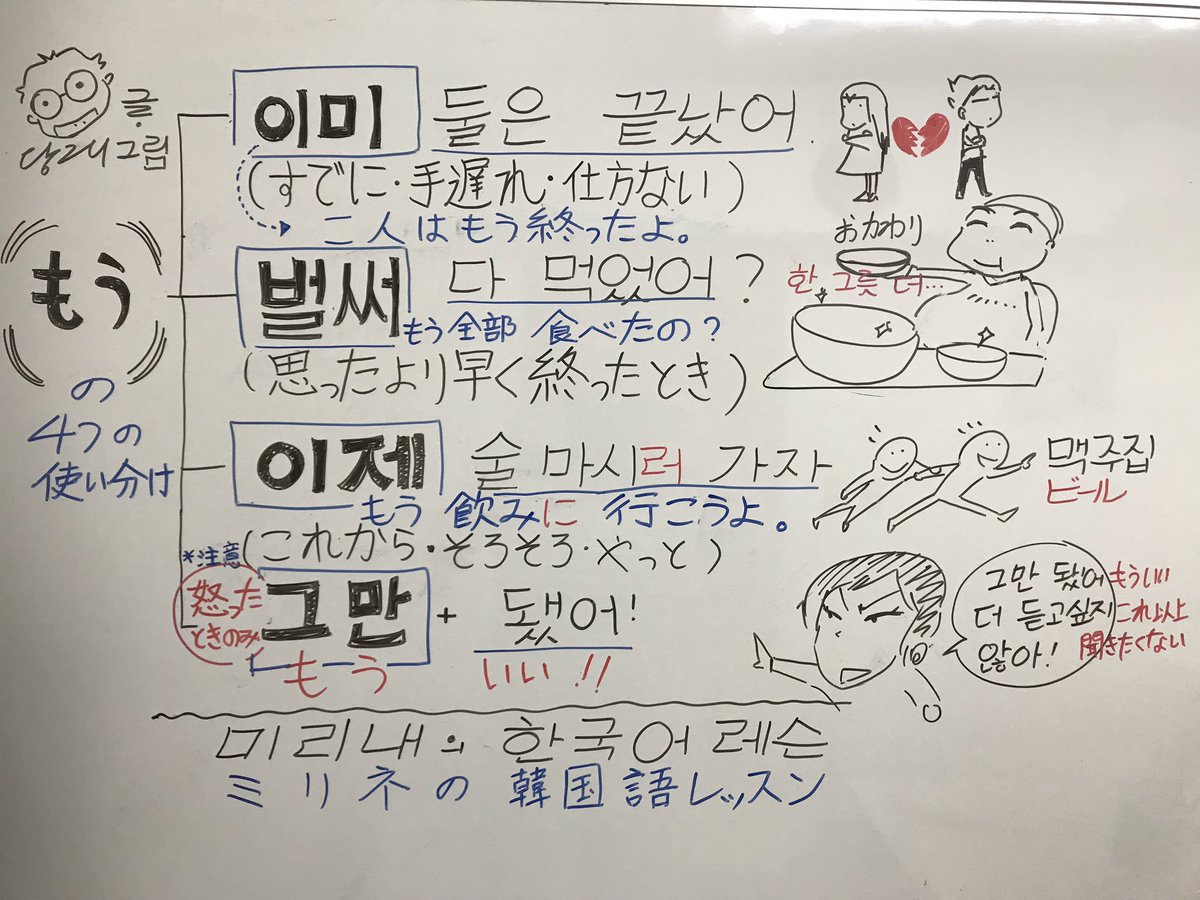 글·
그림
もう
の
4つの
使い分け
이미 둘은 끝났어
(すでに・手遅れ・仕方ない)
二人はもう終ったよ。
벌써 다 먹었어?
もう全部 食べたの?
(思ったより早く終ったとき)
おかわり
한 그릇 더…
이제 술 마시러 가자
もう 飲みに 行こうよ。
(これから・そろそろ・やっと)
맥주집
ビール
*注意
怒った
ときのみ
그만 + 됐어!
もう いい!!
그만 됐어 もういい
더 듣고싶지 これ以上
않아! 聞きたくない
미리내의 한국어 레슨
ミリネの 韓国語レッスン